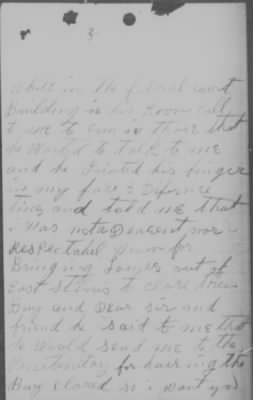 3
While in the federal court
Building in his Room call
to me to com in those that
he Wanted to talk to me
and he Pointed his finger
in my face
ting and told me that
i Was not a Deacent, nor
Respectabel for
Bringing out of
East to clare
Boy and Dear Sir and
friend he said to me that
he Would Send me to the
Penitentiary for haveing the
Boy clared so i want you